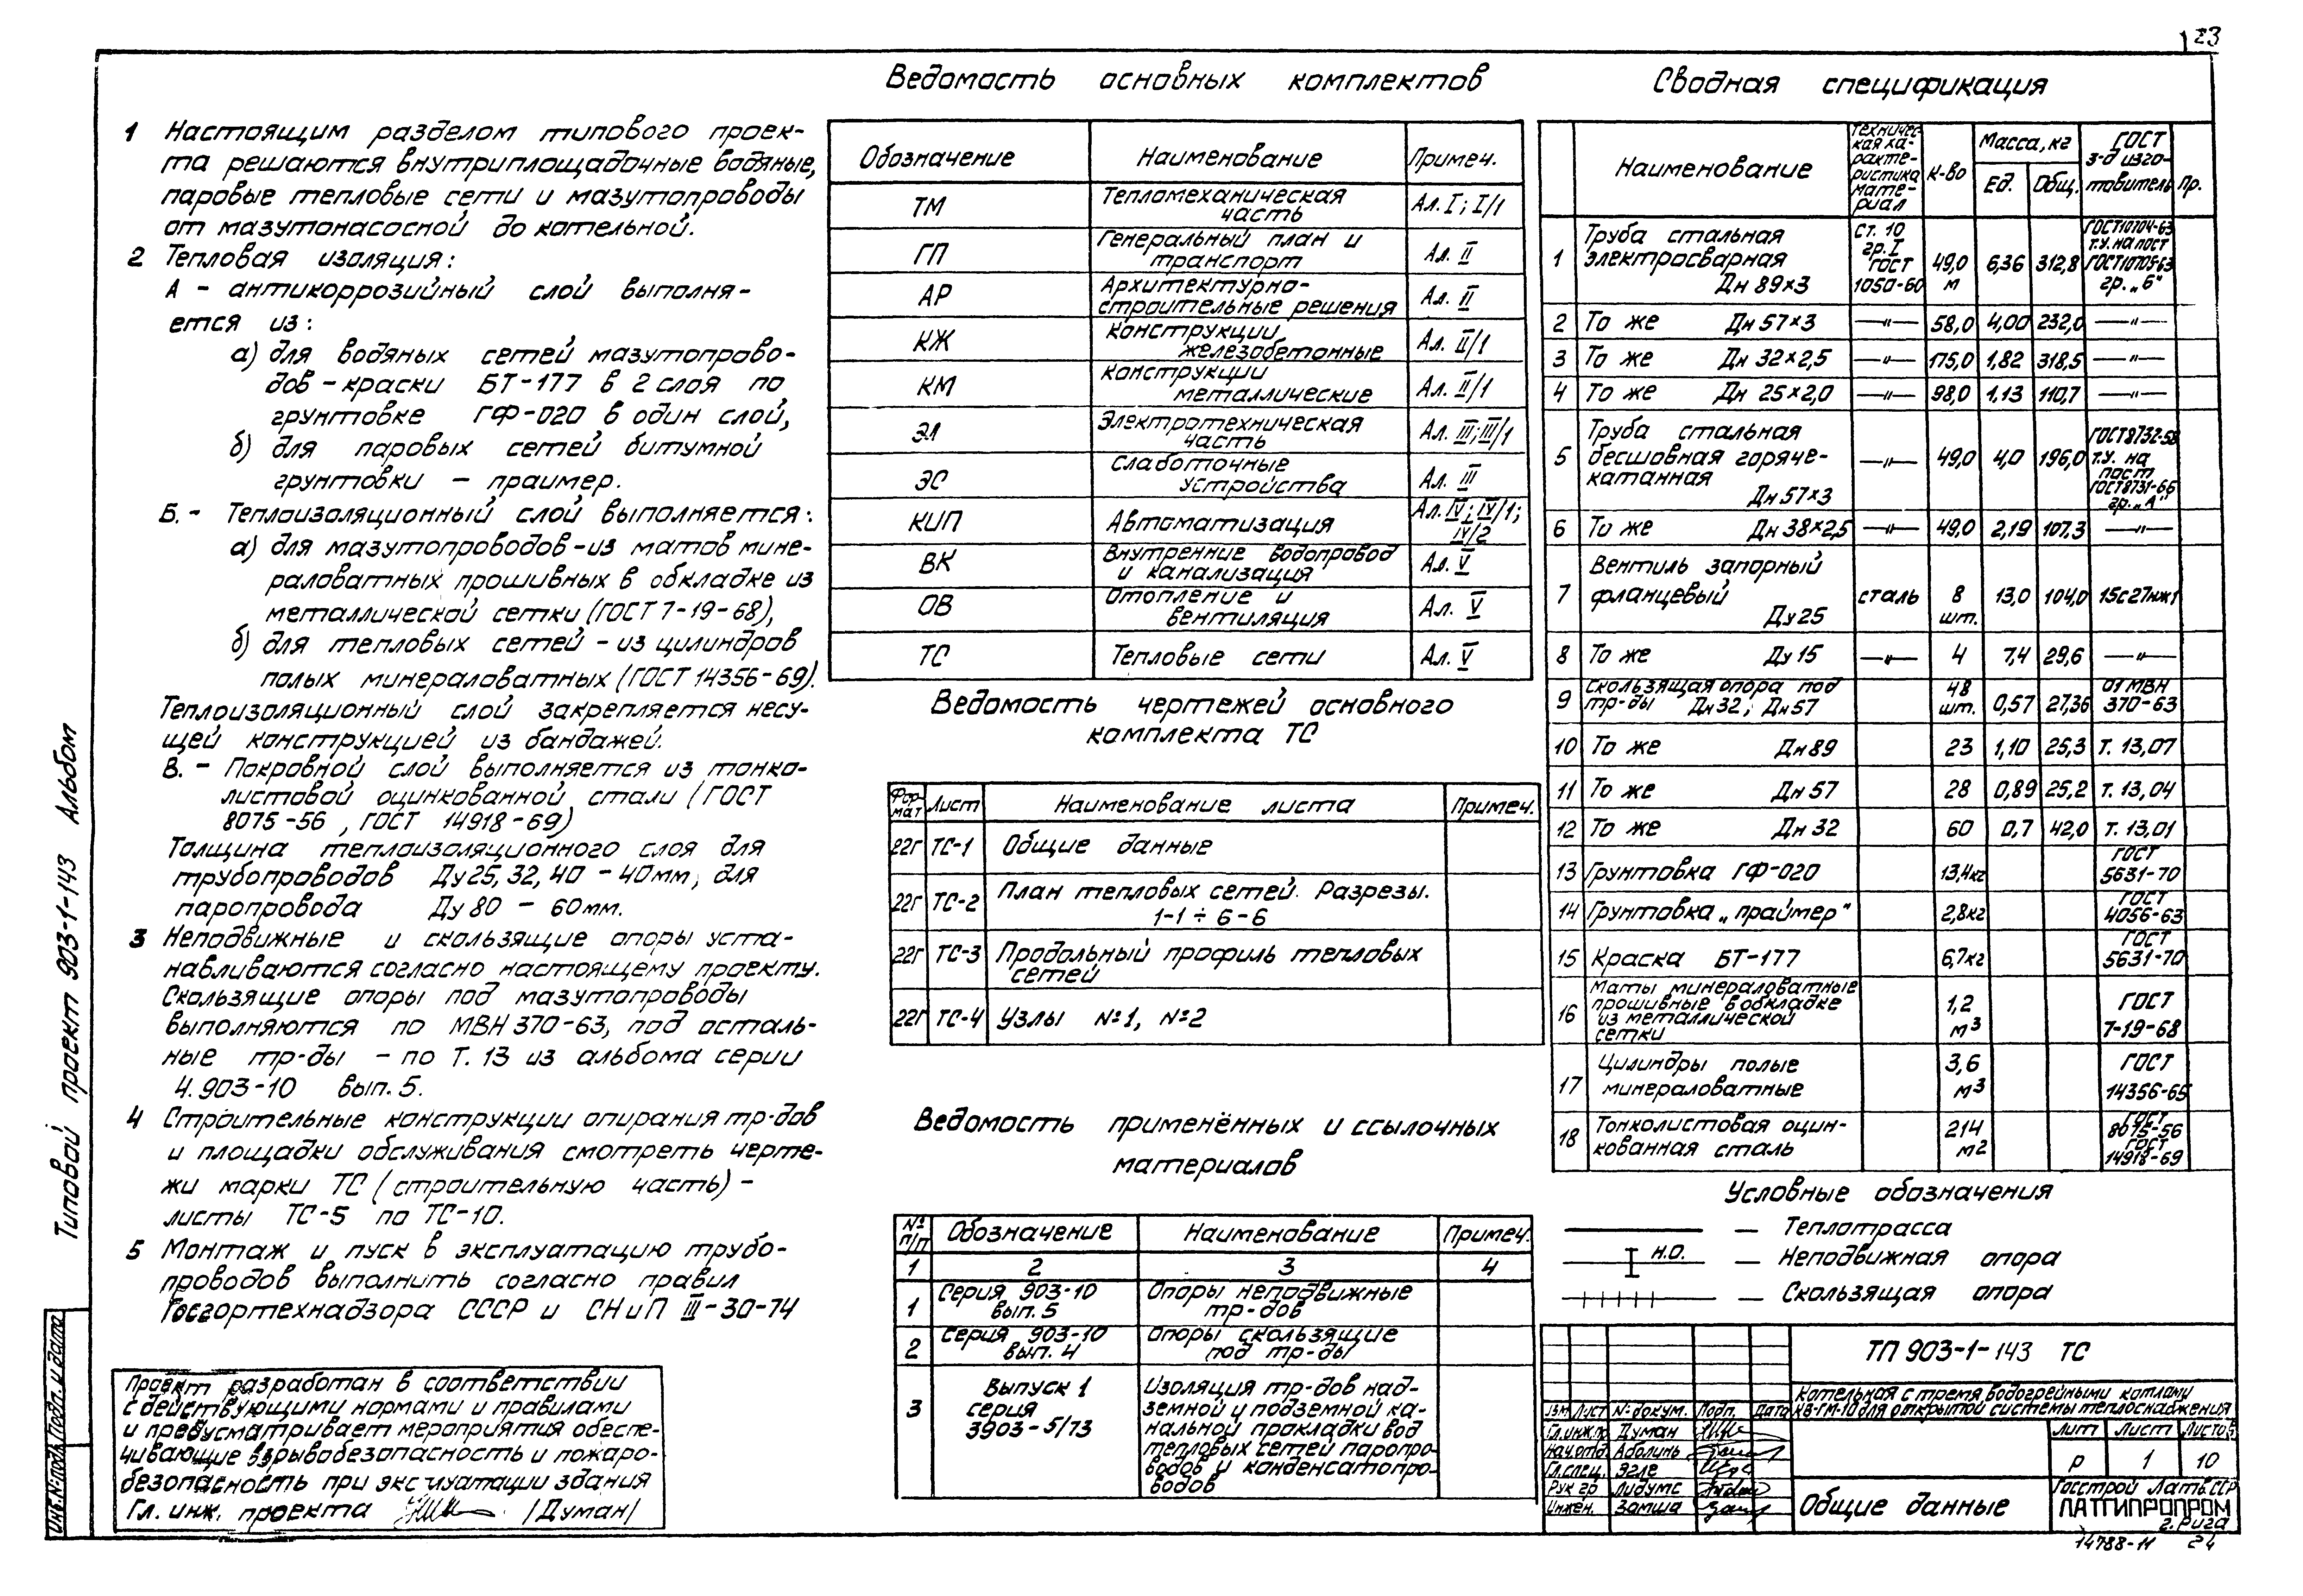 23
1 Настоящим разделом типового проек-
та решаются внутриплощадочные водяные,
паровые тепловые сети и мазутопроводы
от мазутонасосной до котельной.
2 Тепловая изоляция:
А - антикоррозийный слой выполня-
ется из:
а) для водяных сетей мазутопрово-
дов - краски БТ-177 в 2 слоя по
грунтовке ГФ-020 в один слой,
б) для паровых сетей битумной
грунтовки - праймер.
Б. - Теплоизоляционный слой выполняется:
а) для мазутопроводов - из матов мине-
раловатных прошивных в обкладке из
металлической сетки (ГОСТ 7-19-68),
б) для тепловых сетей - из цилиндров
полых минераловатных (ГОСТ 14356-69).
Теплоизоляционный слой закрепляется несу-
щей конструкцией из бандажей.
В. - Покровной слой выполняется из тонко-
листовой оцинкованной стали (ГОСТ
8075-56, ГОСТ 14918-69)
Толщина теплоизоляционного слоя для
трубопроводов Ду25, 32, 40 - 40мм, для
паропровода Ду 80 - 60мм.
3 Неподвижные и скользящие опоры уста-
навливаются согласно настоящему проекту.
Скользящие опоры под мазутопроводы
выполняются по МВН 370-63, под осталь-
ные тр-ды - по Т. 13 из альбома серии
4.903-10 вып. 5.
4 Строительные конструкции опирания тр-дов
и площадки обслуживания смотреть черте-
жи марки ТС (строительную часть) -
листы ТС-5 по ТС-10.
5 Монтаж и пуск в эксплуатацию трубо-
проводов выполнить согласно правил
Госгортехнадзора СССР и СНиП III-30-74
Проект разработан в соответствии
с действующими нормами и правилами
и предусматривает мероприятия обеспе-
чивающие взрывобезопасность и пожаро-
безопасность при эксплуатации здания
Гл. инж. проекта /Думан/
Типовой проект 903-1-143 Альбом
Инв.№подл. Подп. и дата
Ведомость основных комплектов
Обозначение Наименование Примеч.
ТМ Тепломеханическая часть Ал. I; I/1
ГП Генеральный план и транспорт Ал. II
АР Архитектурно-строительные решения Ал. II
КЖ Конструкции железобетонные Ал. II/1
КМ Конструкции металлические Ал. II/1
ЭЛ Электротехническая часть Ал. III; III/1
ЭС Слаботочные устройства Ал. III
КИП Автоматизация Ал. IV; IV/1; IV/2
ВК Внутренние водопровод и канализация Ал. V
ОВ Отопление и вентиляция Ал. V
ТС Тепловые сети Ал. V
Ведомость чертежей основного
комплекта ТС
Фор-мат Лист Наименование листа Примеч.
22г ТС-1 Общие данные
22г ТС-2 План тепловых сетей. Разрезы. 1-1 ÷ 6-6
22г ТС-3 Продольный профиль тепловых сетей
22г ТС-4 Узлы №1, №2
Ведомость применённых и ссылочных
материалов
№ п/п Обозначение Наименование Примеч.
1 2 3 4
1 Серия 903-10 вып. 5 Опоры неподвижные тр-дов
2 Серия 903-10 вып. 4 Опоры скользящие под тр-ды
3 Выпуск 1 серия 3903-5/73 Изоляция тр-дов над-
земной и подземной ка-
нальной прокладки вод
тепловых сетей паропро-
водов и конденсатопро-
водов
Сводная спецификация
Наименование Техничес-кая ха-ракте-ристика мате-риал К-во Масса, кг Ед. Общ. ГОСТ з-д изго-товитель Пр.
1 Труба стальная электросварная Дн 89×3 Ст. 10 гр. I ГОСТ 1050-60 49,0 м 6,36 312,8 ГОСТ10704-63 т.у. на пост ГОСТ10705-63 гр. „Б"
2 То же Дн 57×3 —"— 58,0 4,00 232,0 —"—
3 То же Дн 32×2,5 —"— 175,0 1,82 318,5 —"—
4 То же Дн 25×2,0 —"— 98,0 1,13 110,7 —"—
5 Труба стальная бесшовная горяче-катанная Дн 57×3 —"— 49,0 4,0 196,0 ГОСТ8732-58 т.у. на пост ГОСТ8731-66 гр. „А"
6 То же Дн 38×2,5 —"— 49,0 2,19 107,3 —"—
7 Вентиль запорный фланцевый Ду 25 сталь 8 шт. 13,0 104,0 15с27нж1
8 То же Ду 15 —"— 4 7,4 29,6 —"—
9 Скользящая опора под тр-ды Дн 32; Дн 57 48 шт. 0,57 27,36 01 МВН 370-63
10 То же Дн 89 23 1,10 25,3 Т. 13,07
11 То же Дн 57 28 0,89 25,2 Т. 13,04
12 То же Дн 32 60 0,7 42,0 Т. 13,01
13 Грунтовка ГФ-020 13,4кг ГОСТ 5631-70
14 Грунтовка „праймер" 2,8кг ГОСТ 4056-63
15 Краска БТ-177 6,7кг ГОСТ 5631-70
16 Маты минераловатные прошивные в обкладке из металлической сетки 1,2 м3 ГОСТ 7-19-68
17 Цилиндры полые минераловатные 3,6 м3 ГОСТ 14356-65
18 Тонколистовая оцин-кованная сталь 214 м2 ГОСТ 8075-56 ГОСТ 14918-69
Условные обозначения
— Теплотрасса
Н.О. — Неподвижная опора
— Скользящая опора
ТП 903-1-143 ТС
Котельная с тремя водогрейными котлами
КВ-ГМ-10 для открытой системы теплоснабжения
Изм Лист № докум. Подп. Дата
Гл.инж.пр Думан
Нач.отд Аболинь
Гл.спец. Эгле
Рук гр Лидумс
Инжен. Замша
Лит Лист Листов
Р 1 10
Общие данные
Госстрой Латв.ССР
ЛАТГИПРОПРОМ
г. Рига
14788-11 24